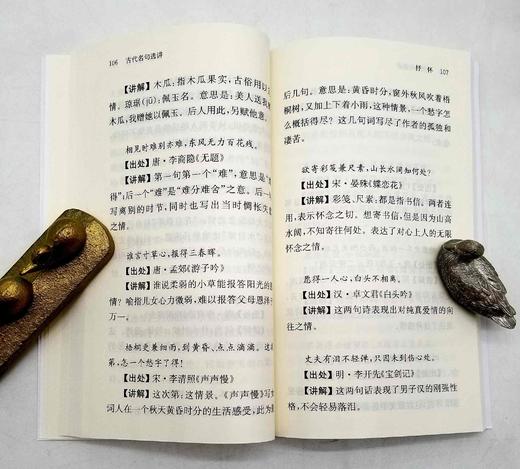 106 古代名句选讲
【讲解】木瓜:指木瓜果实,古俗用以
情。琼琚(jū):佩玉名。意思是:美人送我
木瓜,我赠她以佩玉。后人用此,另赋他意。
相见时难别亦难,东风无力百花残。
【出处】唐·李商隐《无题》
【讲解】第一句第一个“难”,意思是“
得”;后一个“难”是“难分难舍”之意。后一
写离别的时节,同时也写出当时惆怅失
之情。
谁言寸草心,报得三春晖。
【出处】唐·孟郊《游子吟》
【讲解】谁说柔弱的小草能报答阳光的
情?喻指儿女心力微弱,难以报答父母恩泽
万一。
梧桐更兼细雨,到黄昏、点点滴滴。这
第,怎一个愁字了得!
【出处】宋·李清照《声声慢》
【讲解】这次第:这情景。《声声慢》写
词人在一个秋天黄昏时分的生活感受,此为
抒怀 107
后几句。意思是:黄昏时分,窗外秋风吹着梧
桐树,又加上下着小雨,这种情景,一个愁字怎
么概括得尽?这几句词写尽了作者的孤独和
凄苦。
欲寄彩笺兼尺素,山长水阔知何处?
【出处】宋·晏殊《蝶恋花》
【讲解】彩笺、尺素:都是指书信。两者连
用,表示怀念之切。想寄书信,但是因为山高
水阔,不知寄往何处。表达了对心上人的无限
怀念之情。
愿得一人心,白头不相离。
【出处】汉·卓文君《白头吟》
【讲解】这两句诗表现出对纯真爱情的向
往之情。
丈夫有泪不轻弹,只因未到伤心处。
【出处】明·李开先《宝剑记》
【讲解】这两句话表现了男子汉的刚强性
格,不会轻易落泪。